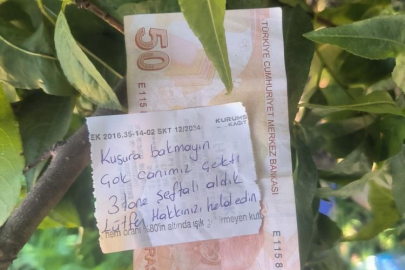 50
E115 8
TÜRKİYE CUMHURİYET MERKEZ BANKASI
EK 2016.35-14-02 SKT 12/20
KURUMS
KAĞIT
Kusura bakmayın
Çok canımız çekti
3 tane şeftali aldık
lütfen Hakkınızı helal edin
nem oranı %80'in altında ışık
rmeyen kut
E115 8